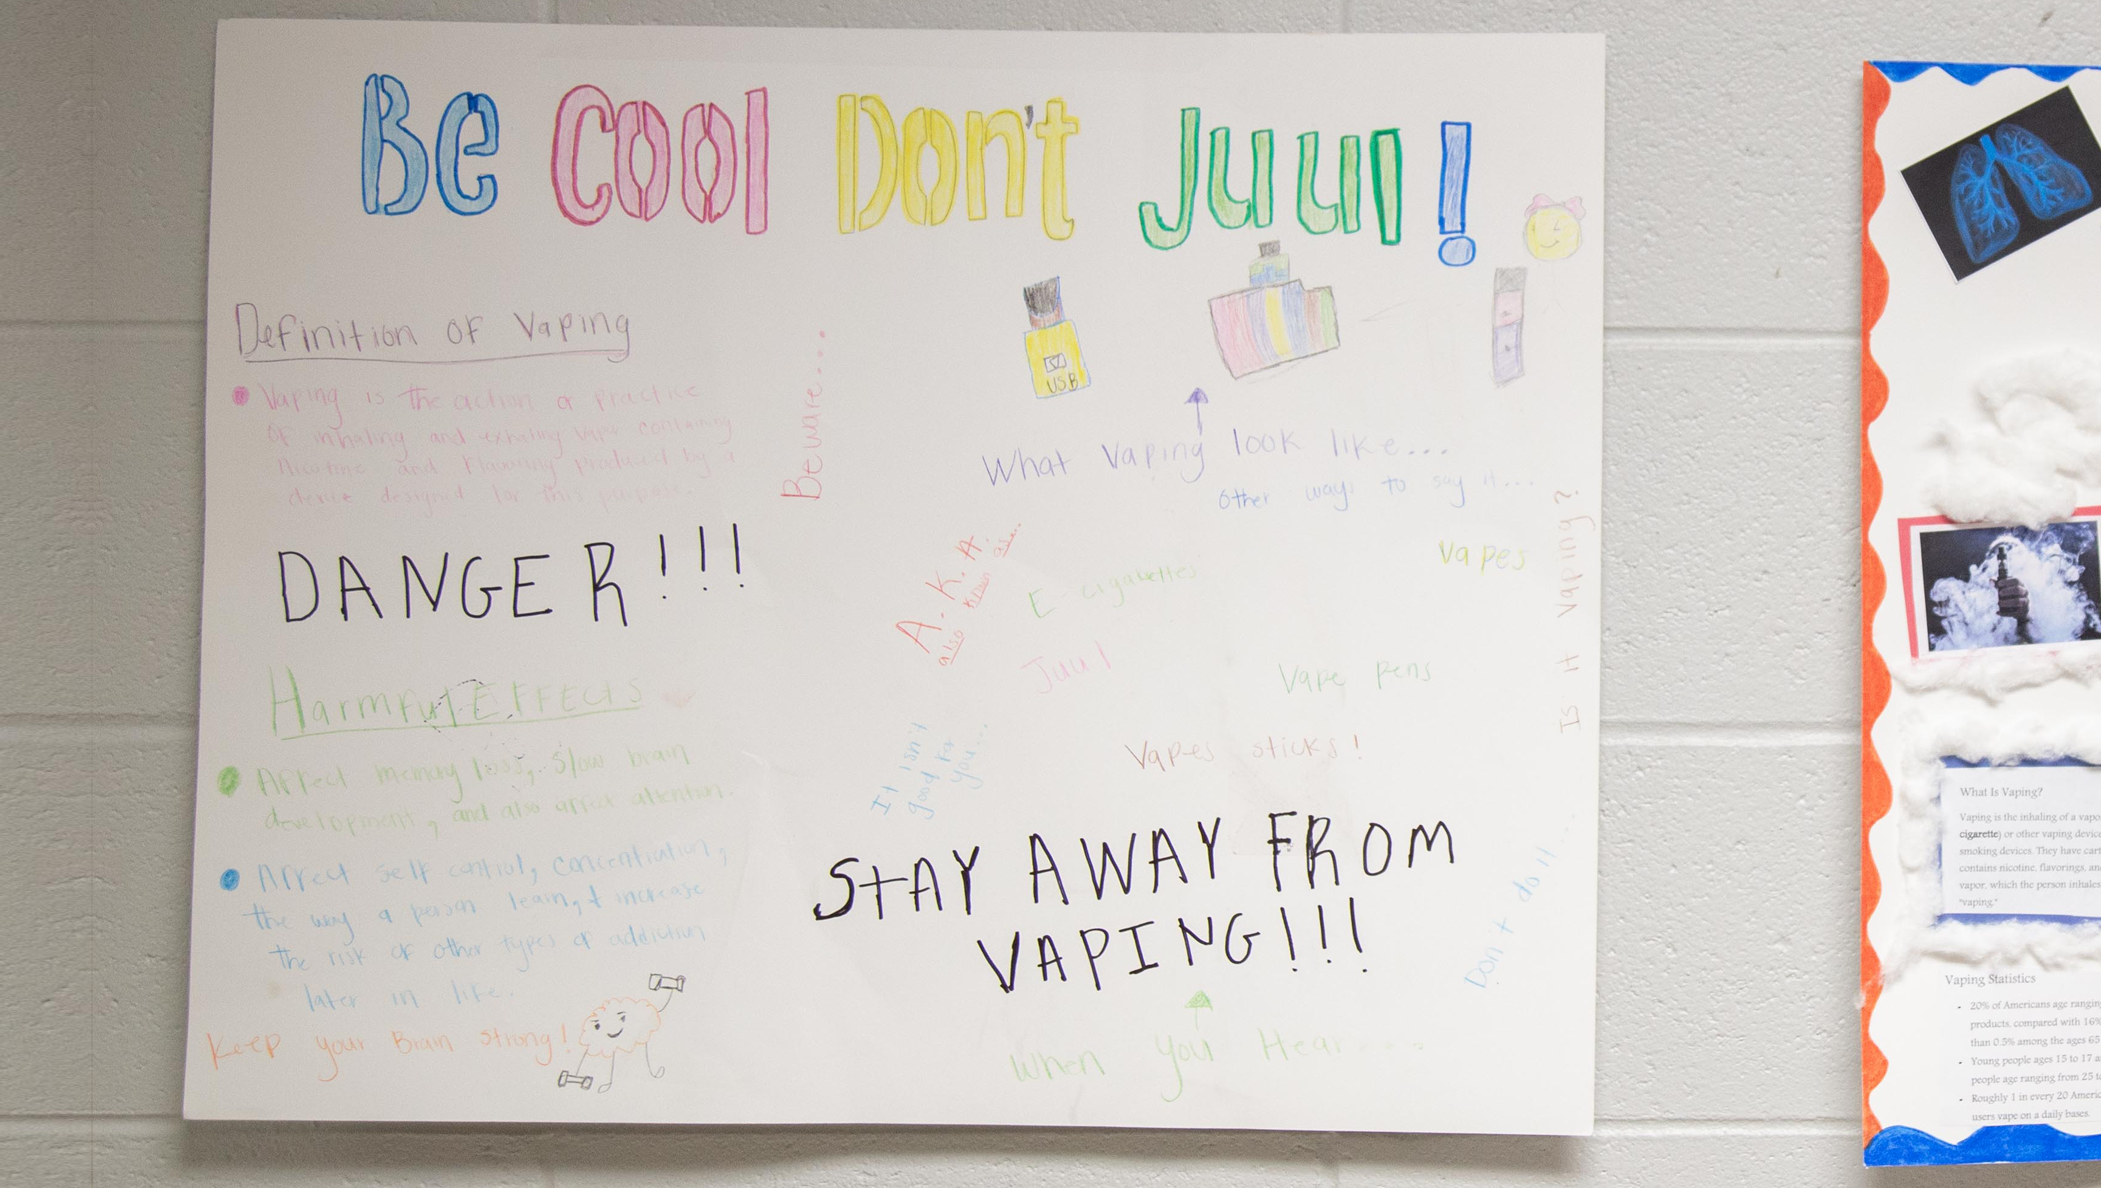 Be Cool Don't Juul!
Definition of Vaping
Vaping is the action or practice
of inhaling and exhaling vapor containing
Nicotine and flavoring produced by a
device designed for this purpose.
Beware....
USB
What Vaping look like...
Other ways to say it...
DANGER!!!
A.K.A.
also known as...
E-cigarettes
Vapes
Juul
Vape pens
Vapes sticks!
Is It Vaping?
Harmful Effects
Affect memory loss, slow brain
development, and also affect attention.
Affect self control, concentration,
the way a person learn, + increase
the risk of other types of addiction
later in life.
Keep your Brain strong!
It isn't
good for
you...
STAY AWAY FROM
VAPING!!!
When you Hear....
Don't do it...
What Is Vaping?
Vaping is the inhaling of a vapo
cigarette) or other vaping device
smoking devices. They have cart
contains nicotine, flavorings, an
vapor, which the person inhales
"vaping."
Vaping Statistics
- 20% of Americans age ranging
products, compared with 16%
than 0.5% among the ages 65
- Young people ages 15 to 17 a
people age ranging from 25 to
- Roughly 1 in every 20 Americ
users vape on a daily bases.